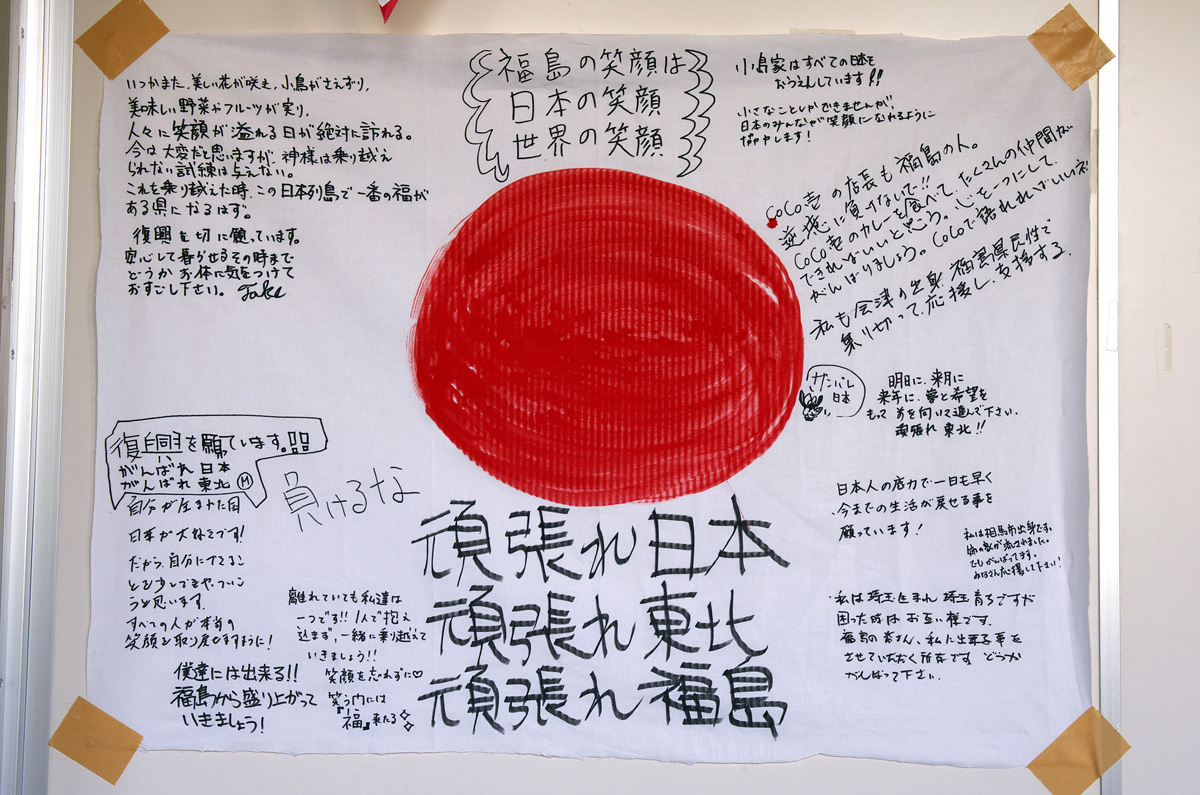 福島の笑顔は
日本の笑顔
世界の笑顔
いつかまた、美しい花が咲き、小鳥がさえずり、
美味しい野菜やフルーツが実り、
人々に笑顔が溢れる日が絶対に訪れる。
今は大変だと思いますが、神様は乗り越え
られない試練は与えない。
これを乗り越えた時、この日本列島で一番の福が
ある県になるはず。
復興を切に願っています。
安心して暮らせるその時まで
どうかお体に気をつけて
おすごし下さい。 Take
小島家はすべての日本を
おうえんしています!!
小さなことしかできませんが、
日本のみんなが笑顔になれるように
協力します!
CoCo壱の店長も福島の人。
逆境に負けないで!!
CoCo壱のカレーを食べて、たくさんの仲間が
できればいいと思う。心を一つにして、
がんばりましょう。CoCoで語れればいいネ
私も会津の出身 福島県民性で
乗り切って、応援し、支援する。
ガンバレ
日本
明日に、来月に
来年に、夢と希望を
もって 前を向いて進んで下さい。
頑張れ 東北!!
復興を願ています。!!!
がんばれ 日本
がんばれ 東北 M
自分が産まれた国
日本が大好きです!
だから、自分にできるこ
とを少しでもやっていこ
うと思います。
すべての人が本当の
笑顔を取り戻せますように!
負けるな
頑張れ日本
頑張れ東北
頑張れ福島
日本人の底力で一日も早く
今までの生活が戻せる事を
願っています!
私は相馬市出身です。
姉の家が流されました。
でもがんばってます。
みなさん応援して下さい!
私は埼玉生まれ 埼玉育ちですが
困った時は お互い様です。
福島の皆さん、私に出来る事を
させていただく所存です どうか
がんばって下さい。
離れていても私達は
一つです!! 1人で抱え
込まず、一緒に乗り越えて
いきましょう!!
笑顔を忘れずに♡
笑う門には
『福』来たる
僕達には出来る!!
福島から盛り上がって
いきましょう!